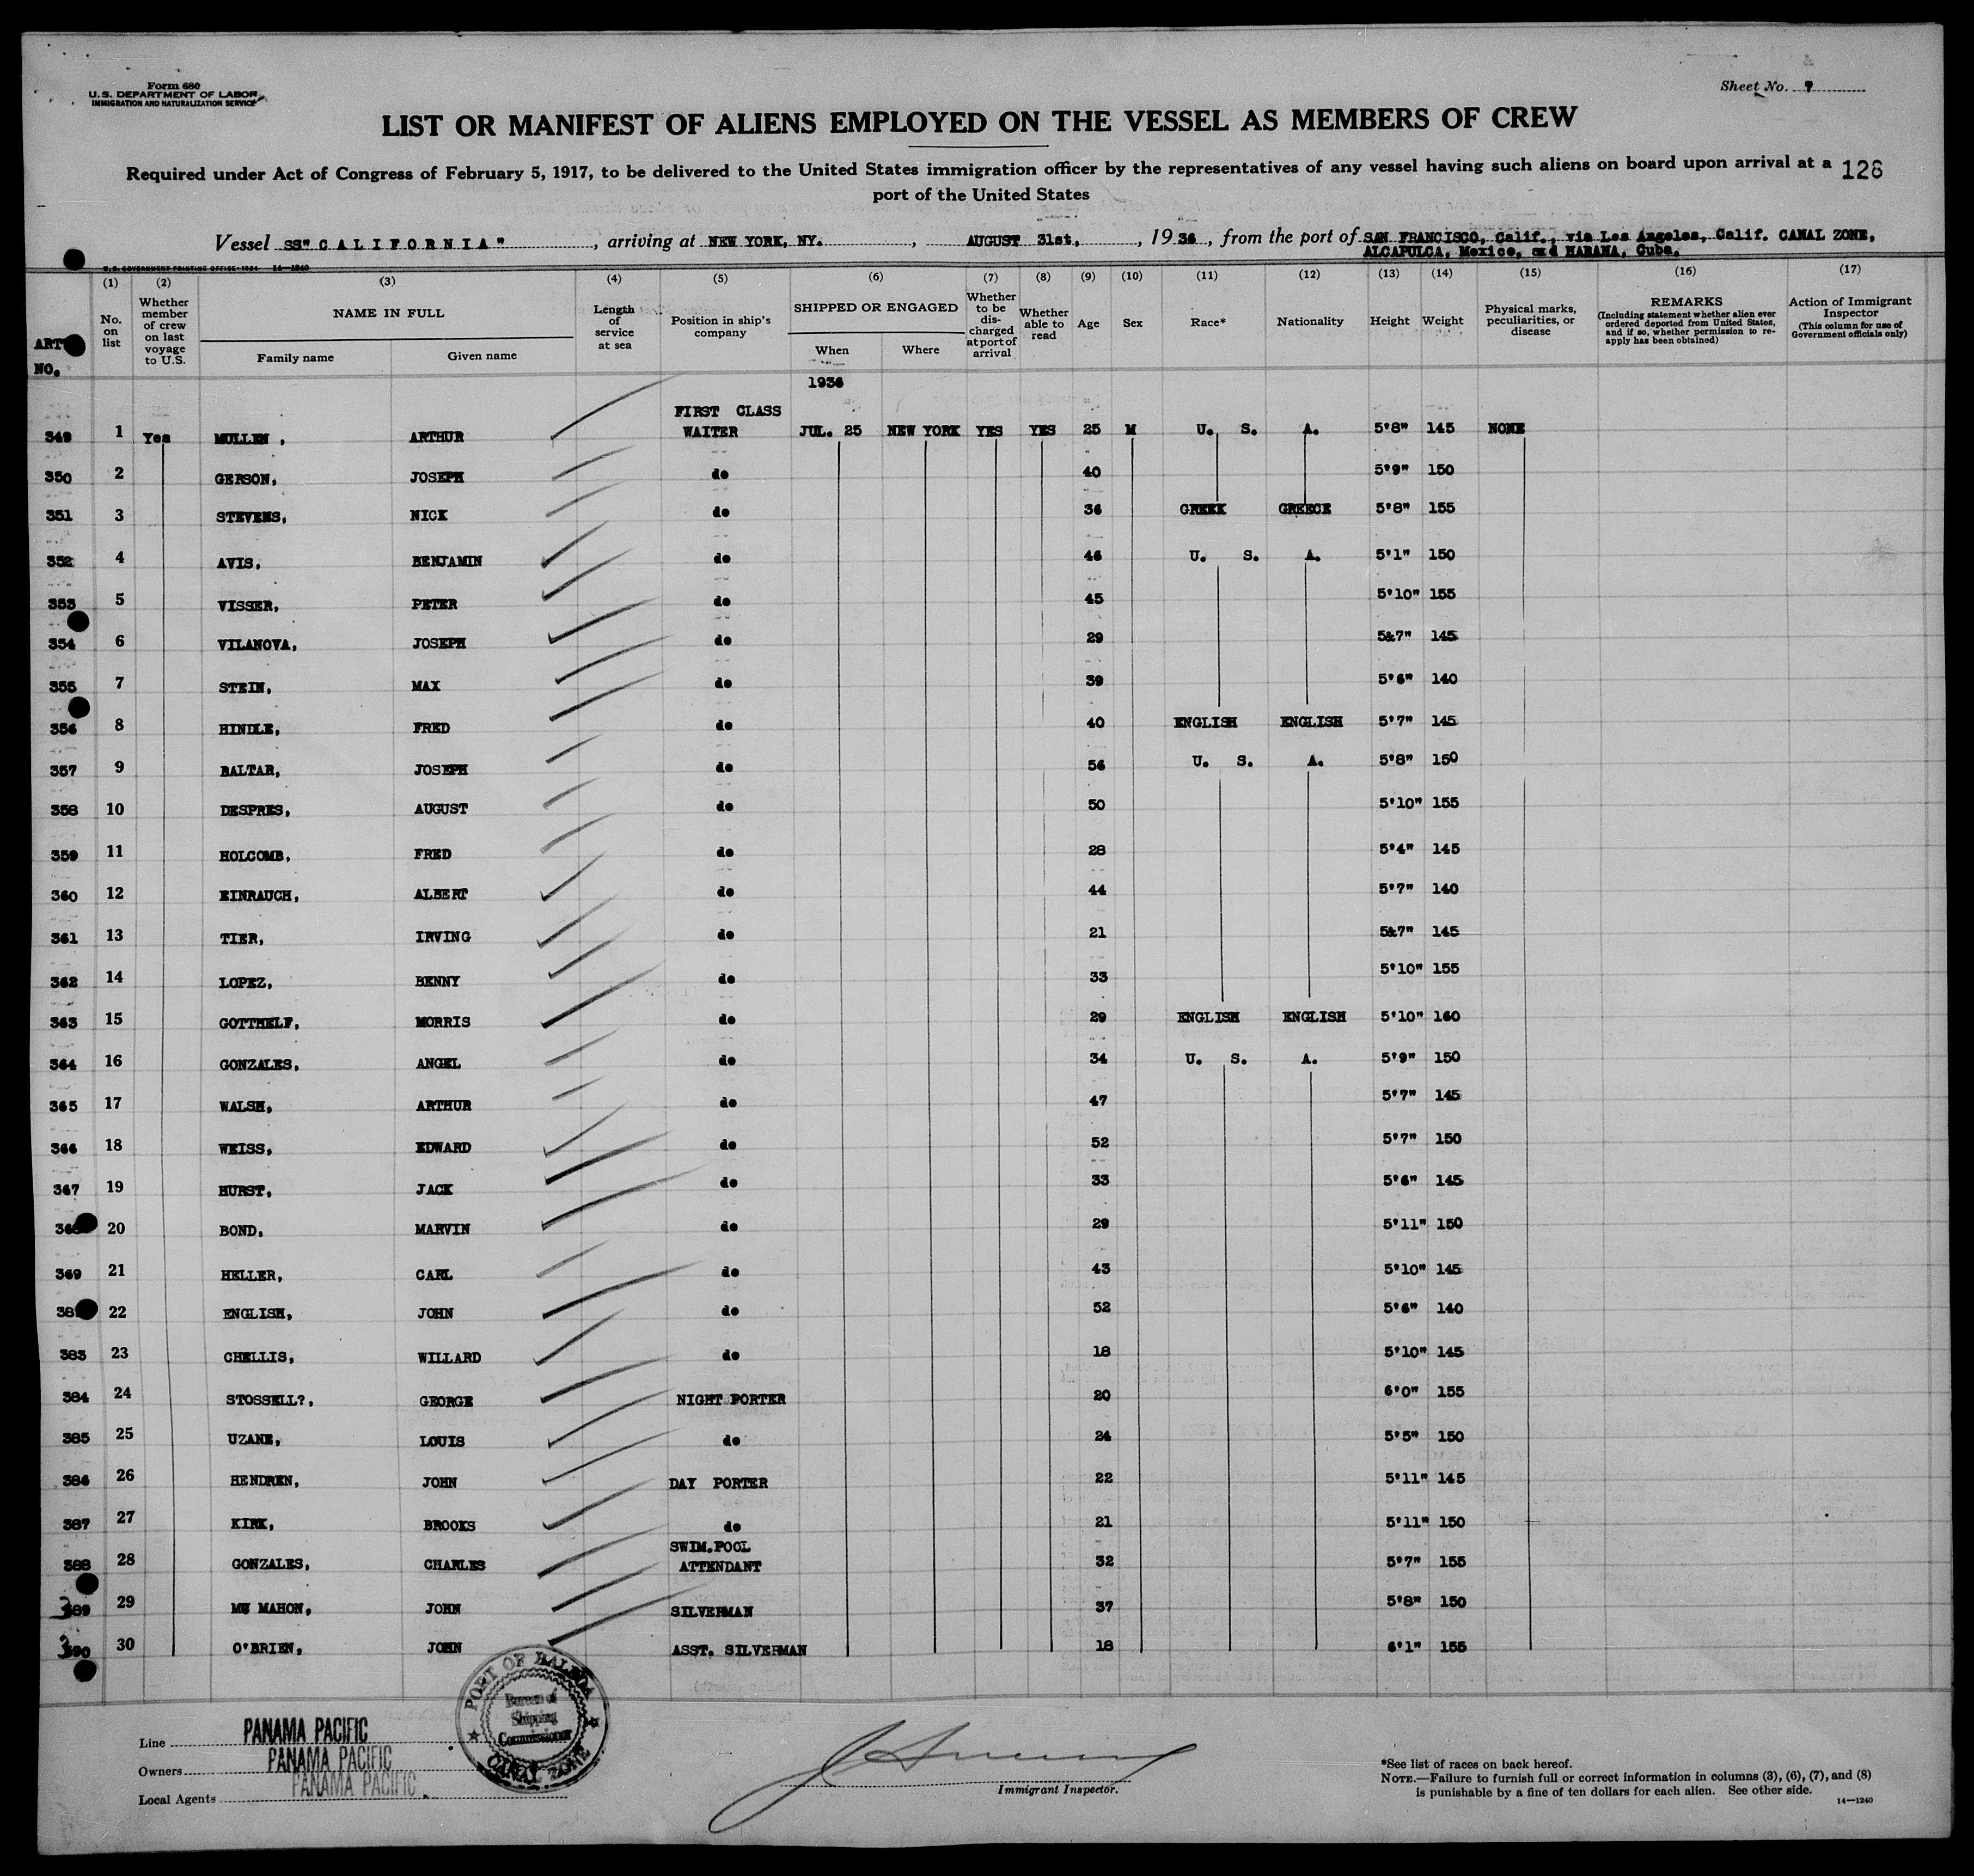 Form 680
U. S. DEPARTMENT OF LABOR
IMMIGRATION AND NATURALIZATION SERVICE
Sheet No. 7
LIST OR MANIFEST OF ALIENS EMPLOYED ON THE VESSEL AS MEMBERS OF CREW
Required under Act of Congress of February 5, 1917, to be delivered to the United States immigration officer by the representatives of any vessel having such aliens on board upon arrival at a
port of the United States
128
Vessel SS"CALIFORNIA", arriving at NEW YORK, NY., AUGUST 31st, 1936, from the port of SAN FRANCISCO, Calif., via Los Angeles, Calif. CANAL ZONE,
ALCAPULCA, Mexico, and HABANA, Cuba.
U. S. GOVERNMENT PRINTING OFFICE: 1934 14—1240
(1) (2) (3) (4) (5) (6) (7) (8) (9) (10) (11) (12) (13) (14) (15) (16) (17)
ART NO. No. on list Whether member of crew on last voyage to U.S. NAME IN FULL Family name Given name Length of service at sea Position in ship's company SHIPPED OR ENGAGED When Where Whether to be discharged at port of arrival Whether able to read Age Sex Race* Nationality Height Weight Physical marks, peculiarities, or disease REMARKS (Including statement whether alien ever ordered deported from United States, and if so, whether permission to reapply has been obtained) Action of Immigrant Inspector (This column for use of Government officials only)
1936
FIRST CLASS
349 1 Yes MULLEN, ARTHUR WAITER JUL. 25 NEW YORK YES YES 25 M U. S. A. 5'8" 145 NONE
350 2 GERSON, JOSEPH do 40 5'9" 150
351 3 STEVENS, NICK do 36 GREEK GREECE 5'8" 155
352 4 AVIS, BENJAMIN do 46 U. S. A. 5'1" 150
353 5 VISSER, PETER do 45 5'10" 155
354 6 VILANOVA, JOSEPH do 29 5&7" 145
355 7 STEIN, MAX do 39 5'6" 140
356 8 HINDLE, FRED do 40 ENGLISH ENGLISH 5'7" 145
357 9 BALTAR, JOSEPH do 56 U. S. A. 5'8" 150
358 10 DESPRES, AUGUST do 50 5'10" 155
359 11 HOLCOMB, FRED do 28 5'4" 145
360 12 EINRAUCH, ALBERT do 44 5'7" 140
361 13 TIER, IRVING do 21 5&7" 145
362 14 LOPEZ, BENNY do 33 5'10" 155
363 15 GOTTHELF, MORRIS do 29 ENGLISH ENGLISH 5'10" 160
364 16 GONZALES, ANGEL do 34 U. S. A. 5'9" 150
365 17 WALSH, ARTHUR do 47 5'7" 145
366 18 WEISS, EDWARD do 52 5'7" 150
367 19 HURST, JACK do 33 5'6" 145
20 BOND, MARVIN do 29 5'11" 150
369 21 HELLER, CARL do 43 5'10" 145
22 ENGLISH, JOHN do 52 5'6" 140
383 23 CHELLIS, WILLARD do 18 5'10" 145
384 24 STOSSELL?, GEORGE NIGHT PORTER 20 6'0" 155
385 25 UZANE, LOUIS do 24 5'5" 150
386 26 HENDREN, JOHN DAY PORTER 22 5'11" 145
387 27 KIRK, BROOKS do 21 5'11" 150
SWIM.POOL
388 28 GONZALES, CHARLES ATTENDANT 32 5'7" 155
389 29 MAHON, JOHN SILVERMAN 37 5'8" 150
390 30 O'BRIEN, JOHN ASST. SILVERMAN 18 6'1" 155
PORT OF BALBOA
Bureau of
Shipping
Commissioner
CANAL ZONE
Line PANAMA PACIFIC
Owners PANAMA PACIFIC
Local Agents PANAMA PACIFIC
Immigrant Inspector.
*See list of races on back hereof.
NOTE.—Failure to furnish full or correct information in columns (3), (6), (7), and (8)
is punishable by a fine of ten dollars for each alien. See other side.
14—1240